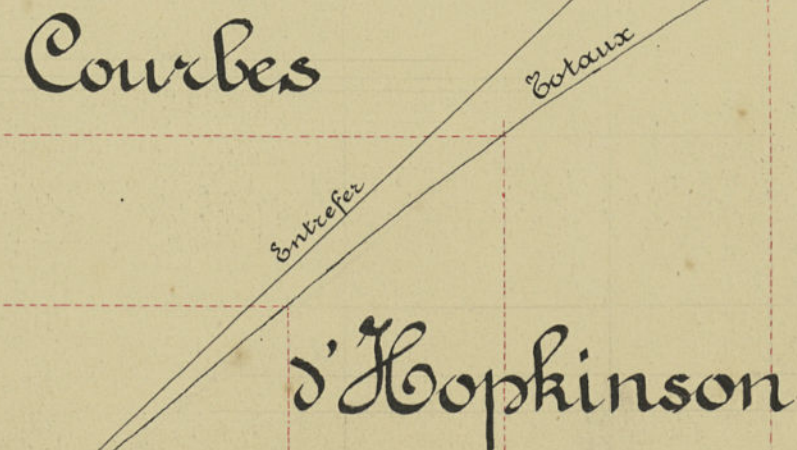 Courbes
Totaux
Entrefer
d'Hopkinson